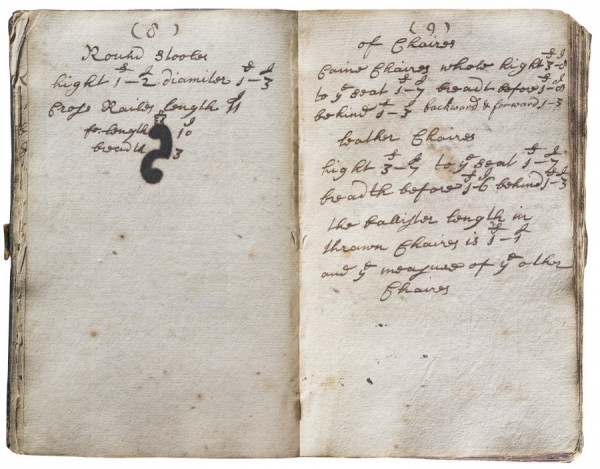 (8)
Round stooles
hight 1-2 diamiter 1-3
Cross Railes length 11
for length 10
breadth 3
(9)
of Chaires
Caine Chaires whole hight 3-8
to ye seat 1-7 breadt before 1-8
behind 1-3 backward & forward 1-3
leather Chaires
hight 3-7 to ye seat 1-7
breadth before 1-6 behind 1-3
the ballister length in
thrawn Chaires is 1-1
and ye measure of ye other
Chaires